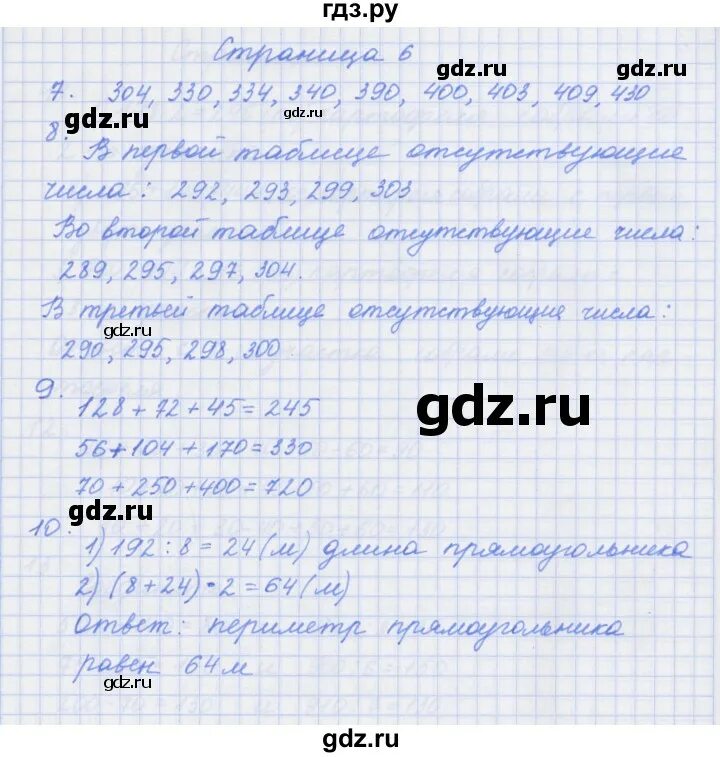 гдз.ру
Страница 6
gdz.ru
gdz.ru
7. 304, 330, 334, 340, 390, 400, 403, 409, 430
gdz.ru
gdz.ru
8. В первой таблице отсутствующие
числа: 292, 293, 299, 303
gdz.ru
Во второй таблице отсутствующие числа:
289, 295, 297, 304.
В третьей таблице отсутствующие числа:
gdz.ru
290, 295, 298, 300
9.
128 + 72 + 45 = 245
gdz.ru
56 + 104 + 170 = 330
70 + 250 + 400 = 720
gdz.ru
10. 1) 192 : 8 = 24 (м) длина прямоугольника
2) (8 + 24) • 2 = 64 (м)
Ответ: периметр прямоугольника
равен 64 м
gdz.ru
gdz.ru
gdz.ru